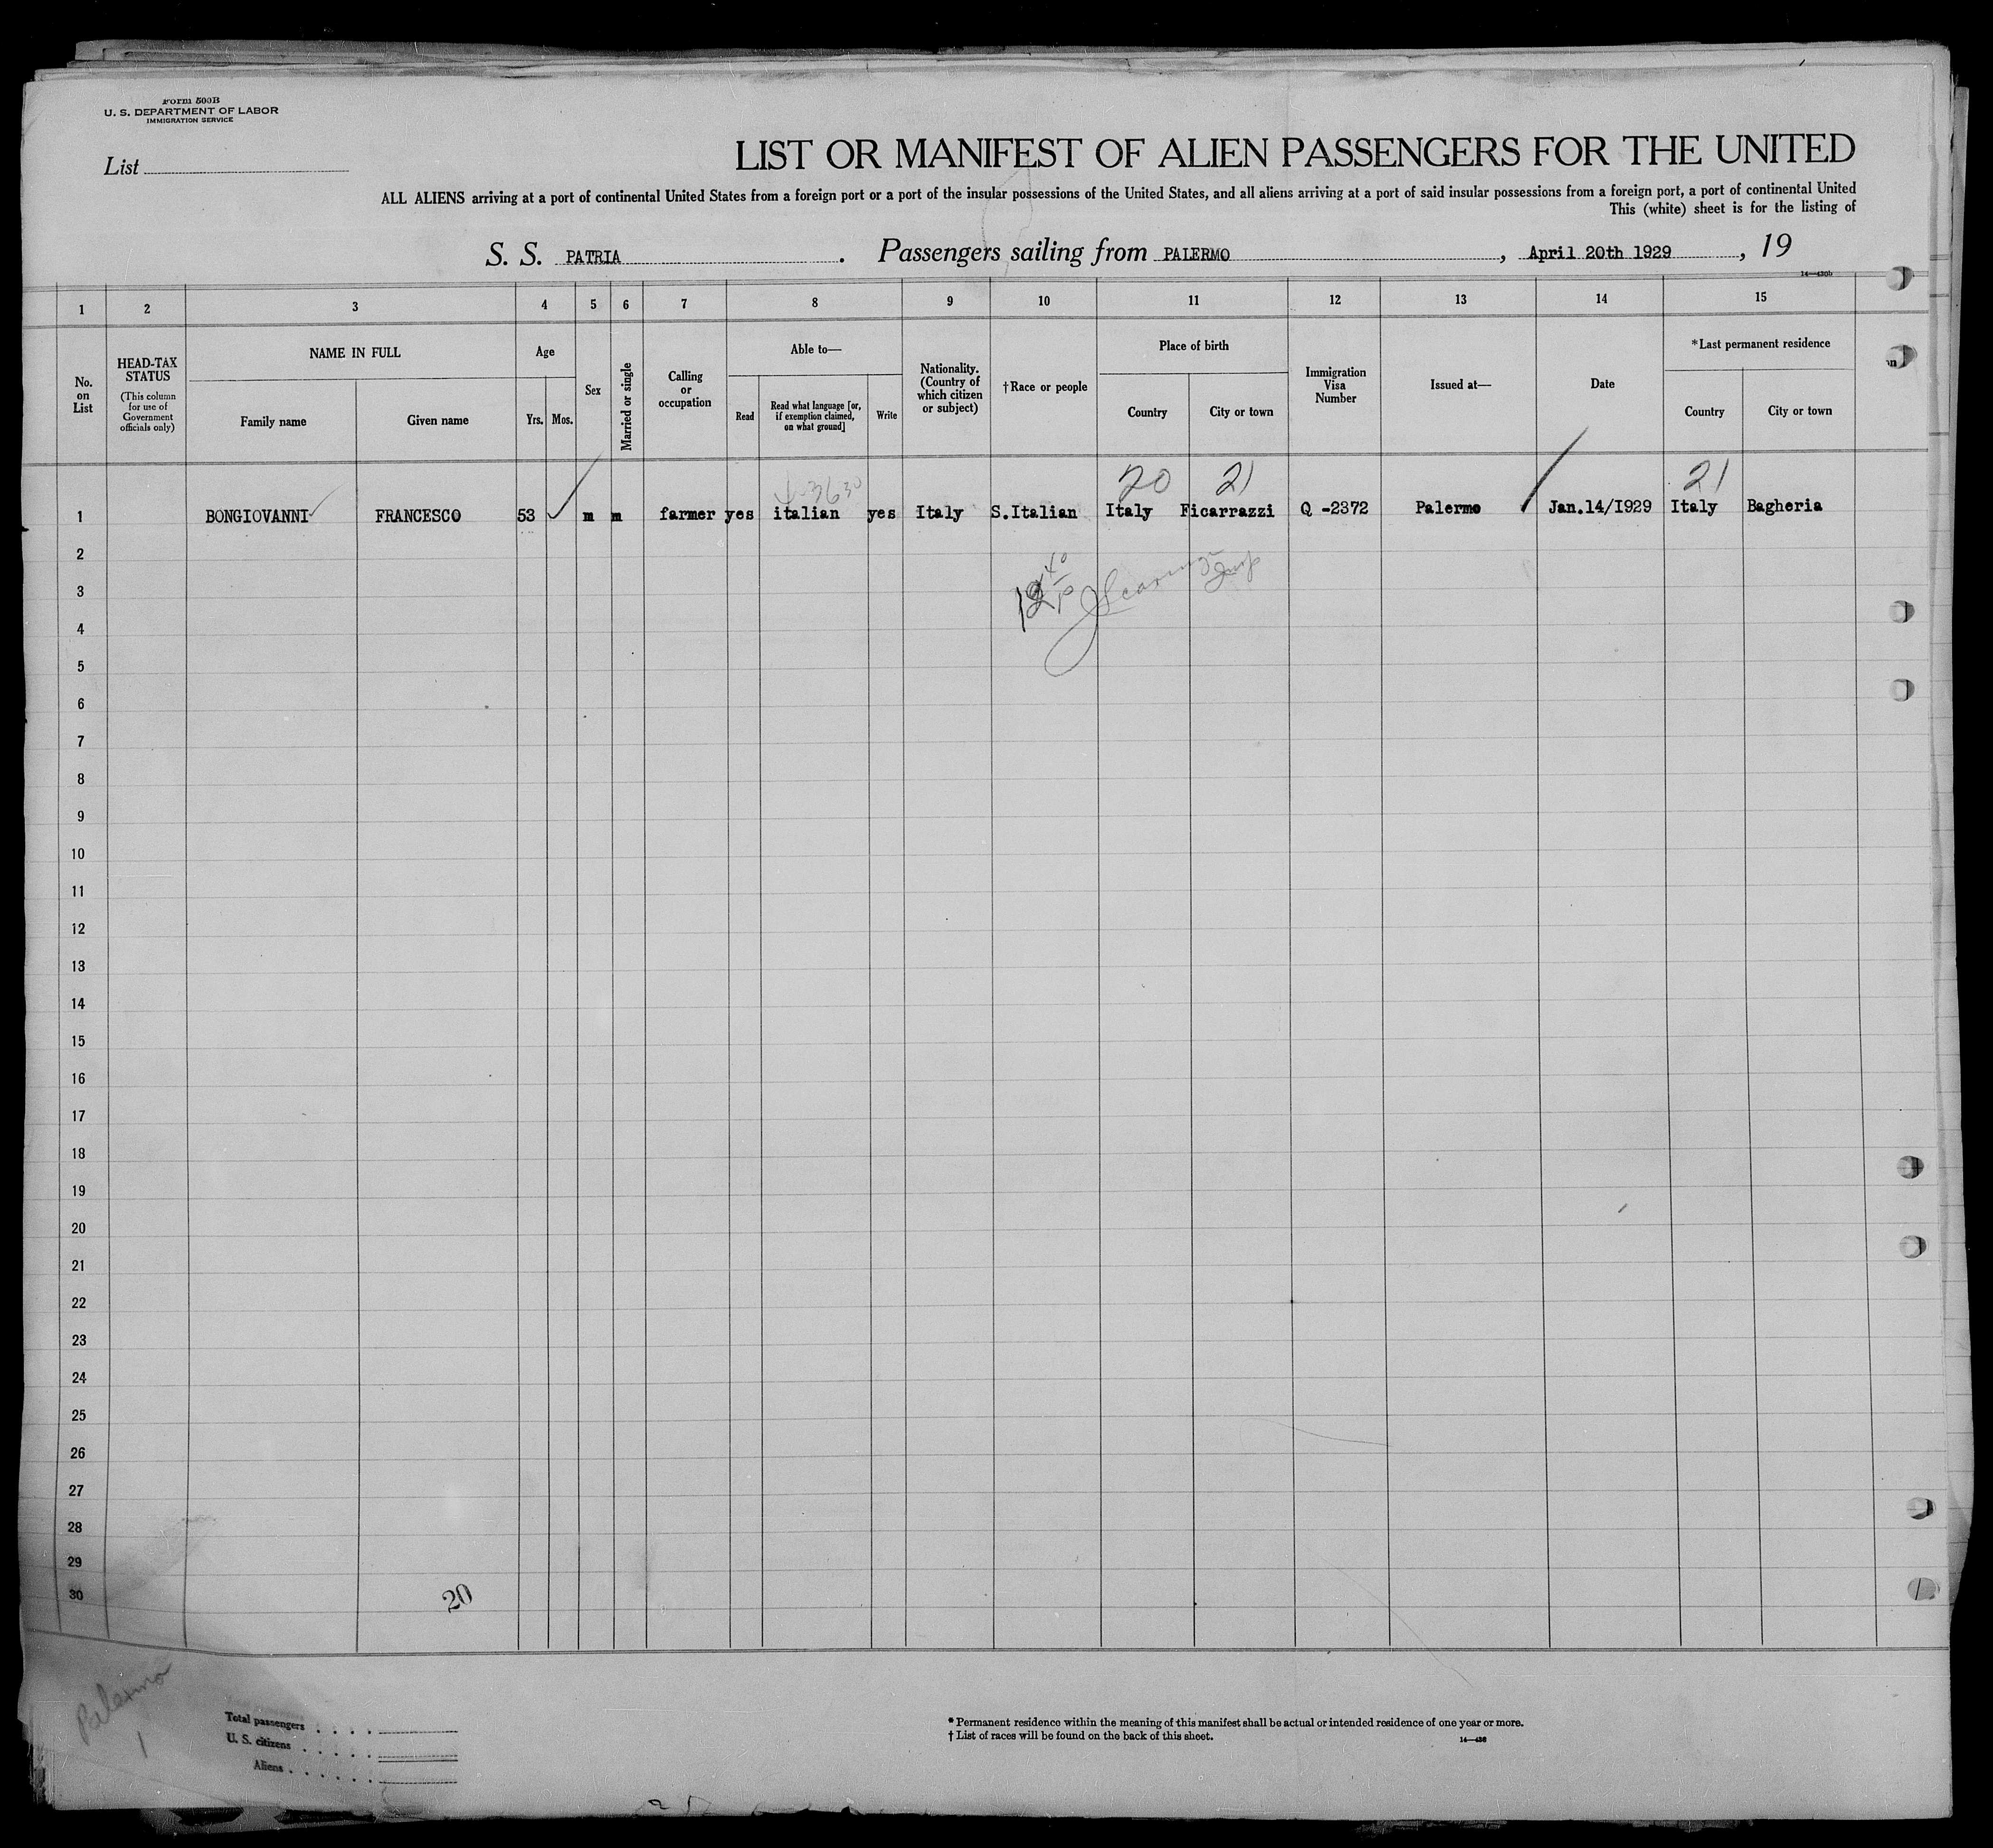 Form 500B
U. S. DEPARTMENT OF LABOR
IMMIGRATION SERVICE
List
LIST OR MANIFEST OF ALIEN PASSENGERS FOR THE UNITED
ALL ALIENS arriving at a port of continental United States from a foreign port or a port of the insular possessions of the United States, and all aliens arriving at a port of said insular possessions from a foreign port, a port of continental United
This (white) sheet is for the listing of
S. S. PATRIA . Passengers sailing from PALERMO , April 20th 1929 , 19
14—430b
1 2 3 4 5 6 7 8 9 10 11 12 13 14 15
No. on List
HEAD-TAX STATUS
(This column for use of Government officials only)
NAME IN FULL
Family name
Given name
Age
Yrs.
Mos.
Sex
Married or single
Calling or occupation
Able to—
Read
Read what language [or, if exemption claimed, on what ground]
Write
Nationality. (Country of which citizen or subject)
†Race or people
Place of birth
Country
City or town
Immigration Visa Number
Issued at—
Date
*Last permanent residence
Country
City or town
20 21 21
1 BONGIOVANNI FRANCESCO 53 m m farmer yes italian yes Italy S.Italian Italy Ficarrazzi Q -2372 Palermo Jan.14/I929 Italy Bagheria
2
3
4
5
6
7
8
9
10
11
12
13
14
15
16
17
18
19
20
21
22
23
24
25
26
27
28
29
30
20
Palermo
1
Total passengers . . . .
U. S. citizens . . . . .
Aliens . . . . . .
* Permanent residence within the meaning of this manifest shall be actual or intended residence of one year or more.
† List of races will be found on the back of this sheet.
14—430